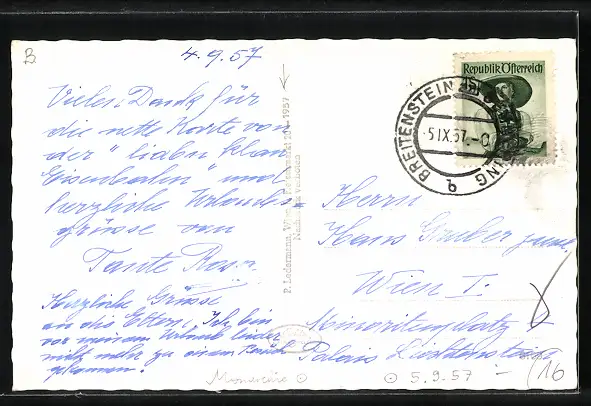 B
4.9.57
Vielen Dank für
die nette Karte von
der "lieben klan
Eisenbalen" und
herzliche Urlaubs-
grüsse von
Tante Rosa.
Herzliche Grüsse
an die Eltern! Ich bin
vor meinem Urlaub leider
nicht mehr zu einem Besuch
gekommen.
P. Ledermann, Wien I.,
1957
Republik Österreich
BREITENSTEIN
5.IX.57
b
Herrn
Hans Gruber jun.
Wien I.
Minoritenplatz 4
Palais Liechtenstein
5.9.57
16